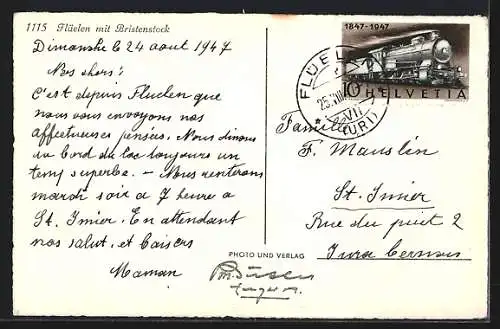 1115 Flüelen mit Bristenstock
Dimanche le 24 aout 1947
Nos chers!
C'est depuis Fluelen que
nous vous envoyons nos
affectueuses pensées. Nous dinons
au bord du lac toujours un
temp superbe. - Nous rentrerons
mardi soir a 7 heure a
St. Imier. En attendant
nos salut, et baisers
Maman
PHOTO UND VERLAG
1847-1947
10 HELVETIA
FLÜEL
25.VIII
(URI)
Famille
F. Mauslin
St. Imier
Rue du puit 2
Jura bernois